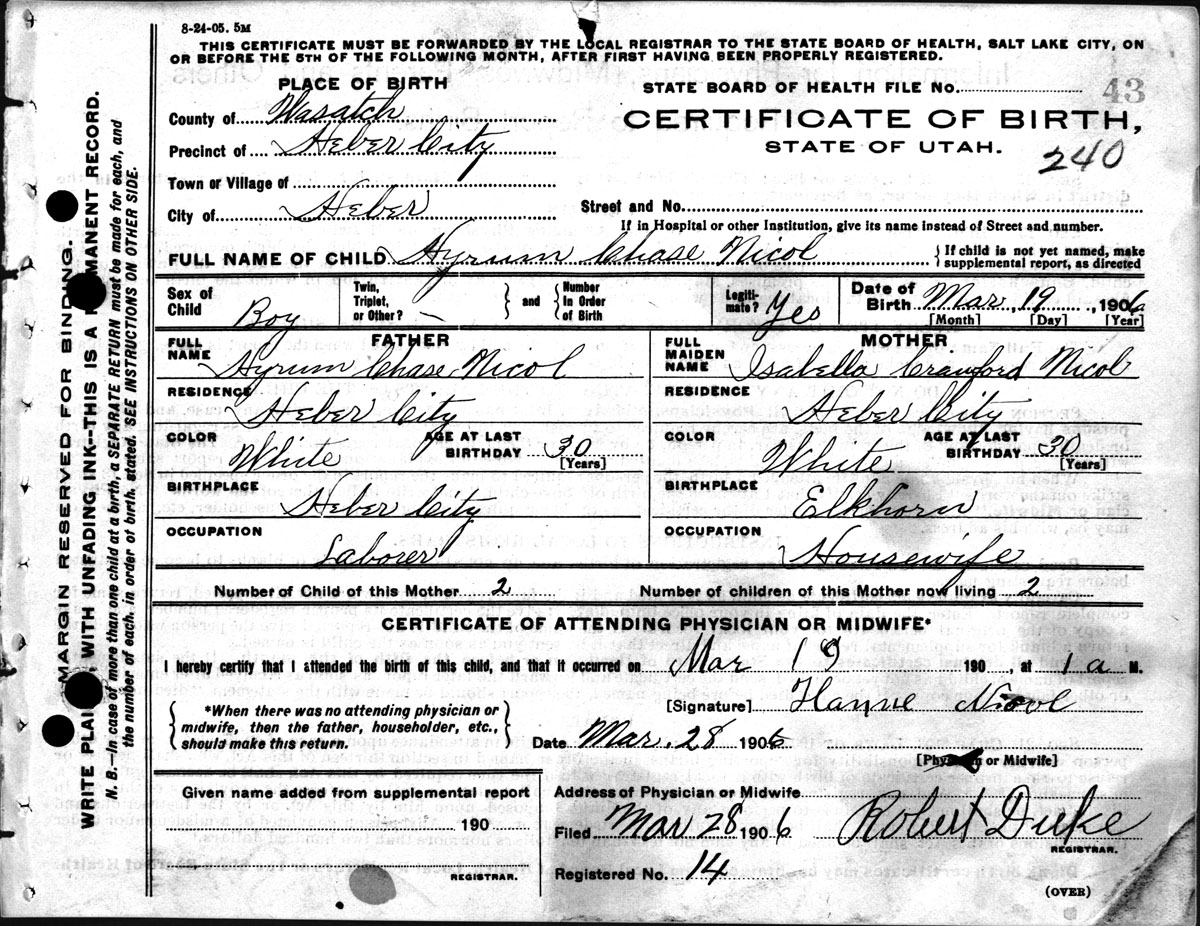 8-24-05. 5M
THIS CERTIFICATE MUST BE FORWARDED BY THE LOCAL REGISTRAR TO THE STATE BOARD OF HEALTH, SALT LAKE CITY, ON
OR BEFORE THE 5TH OF THE FOLLOWING MONTH, AFTER FIRST HAVING BEEN PROPERLY REGISTERED.
PLACE OF BIRTH
STATE BOARD OF HEALTH FILE No. 43
County of Wasatch
CERTIFICATE OF BIRTH,
Precinct of Heber City
STATE OF UTAH.
240
Town or Village of
City of Heber
Street and No.
If in Hospital or other Institution, give its name instead of Street and number.
FULL NAME OF CHILD Hyrum Chase Nicol { If child is not yet named, make
supplemental report, as directed
Sex of Child Boy
Twin, Triplet, or Other? - } and { Number In Order of Birth
Legiti-mate? Yes
Date of Birth Mar. 19, 1906
[Month] [Day] [Year]
FATHER
FULL NAME Hyrum Chase Nicol
RESIDENCE Heber City
COLOR White AGE AT LAST BIRTHDAY 30 [Years]
BIRTHPLACE Heber City
OCCUPATION Laborer
MOTHER
FULL MAIDEN NAME Isabella Crawford Nicol
RESIDENCE Heber City
COLOR White AGE AT LAST BIRTHDAY 30 [Years]
BIRTHPLACE Elkhorn
OCCUPATION Housewife
Number of Child of this Mother 2 Number of children of this Mother now living 2
CERTIFICATE OF ATTENDING PHYSICIAN OR MIDWIFE*
I hereby certify that I attended the birth of this child, and that it occurred on Mar 19 190 , at 1 a M.
[Signature] Hanne Nicol
{ *When there was no attending physician or
midwife, then the father, householder, etc.,
should make this return. }
Date Mar. 28 1906
[Physician or Midwife]
Given name added from supplemental report
190
REGISTRAR.
Address of Physician or Midwife
Filed Mar 28 1906 Robert Duke
REGISTRAR.
Registered No. 14
(OVER)
MARGIN RESERVED FOR BINDING.
WRITE PLAINLY WITH UNFADING INK--THIS IS A PERMANENT RECORD.
N. B.—In case of more than one child at a birth, a SEPARATE RETURN must be made for each, and
the number of each, in order of birth, stated. SEE INSTRUCTIONS ON OTHER SIDE.